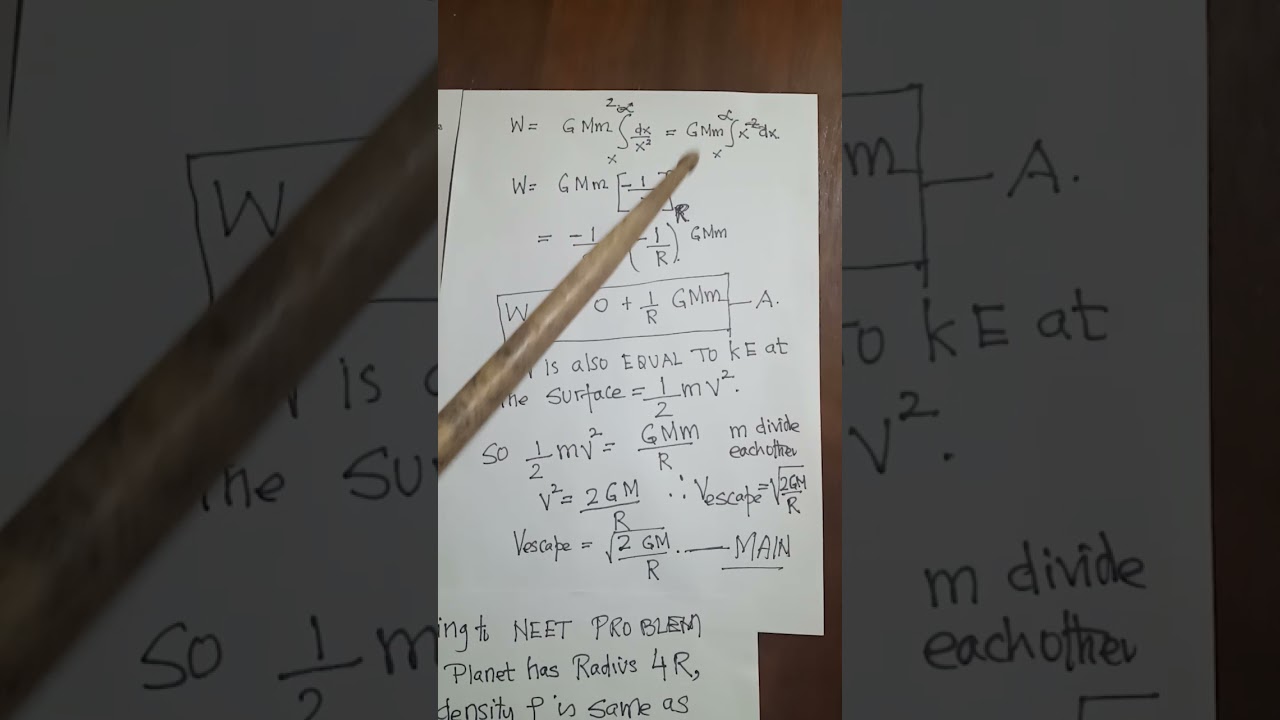 W = GMm ∫ dx/x² = GMm ∫ x⁻² dx
2 ∝ x ∝ x
W = GMm [-1 R
= -1 (-1/R) GMm
W 0 + 1/R GMm — A.
is also EQUAL TO KE at
the surface = 1/2 mV².
So 1/2 mv² = GMm/R m divide eachother
V² = 2GM/R ∴ Vescape = √2GM/R
Vescape = √2GM/R. — MAIN
NEET PROBLEM
Planet has Radius 4R,
density ρ is same as